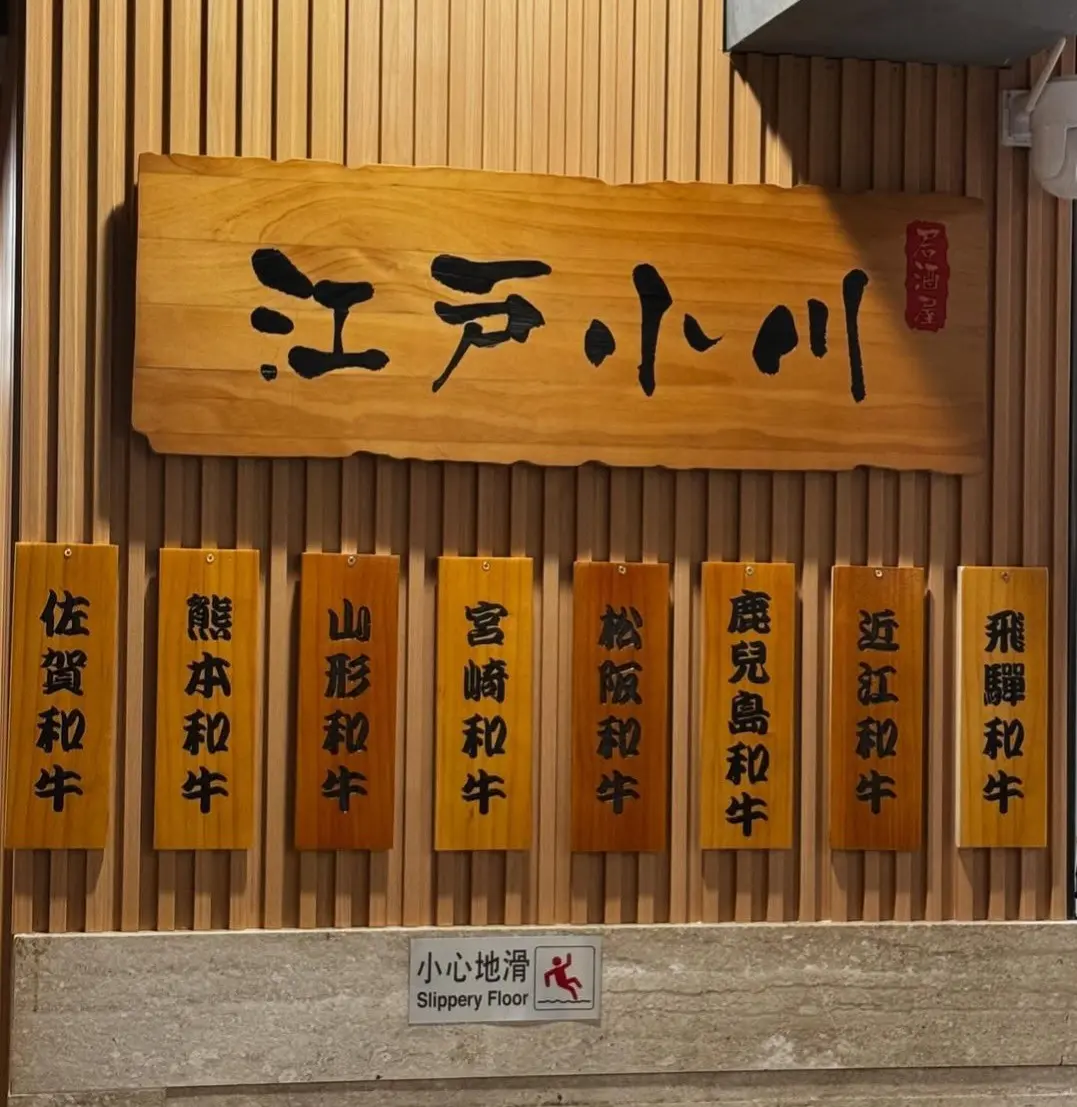 江戸小川
居酒屋
佐賀和牛
熊本和牛
山形和牛
宮崎和牛
松阪和牛
鹿兒島和牛
近江和牛
飛驒和牛
小心地滑
Slippery Floor